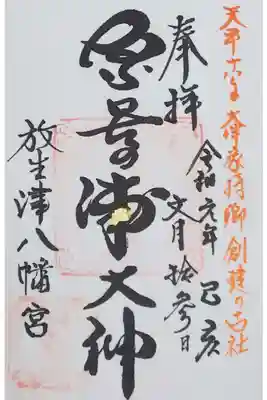 天平十八年大伴家持卿創建の古社
奉拝
令和元年己亥
文月拾参日
奈呉の浦大神
放生津八幡宮